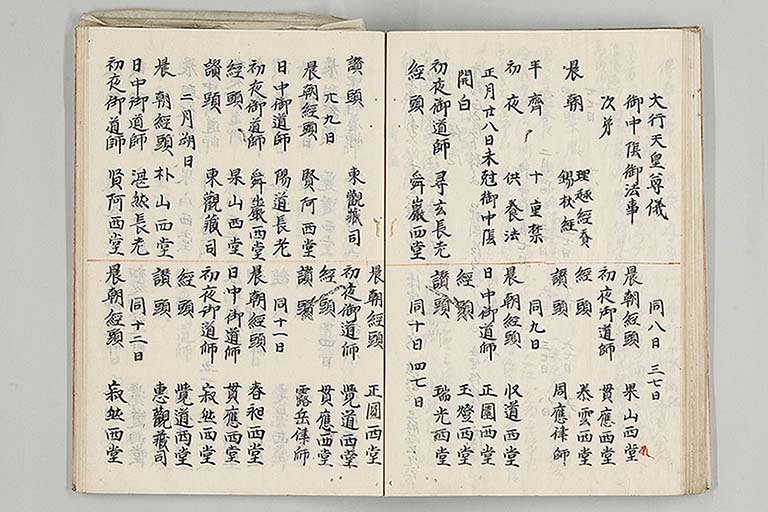 大行天皇尊儀
御中陰御法事
次第
晨朝 理趣經 錫杖經
半齊 十重禁
初夜 供養法
正月廿八日未尅御中陰
開白
初夜御道師 尋玄長老
經頭 舜巖西堂
讃頭 東觀藏司
廿九日
晨朝經頭 賢阿西堂
日中御道師 陽道長老
初夜御道師 舜巖西堂
經頭 杲山西堂
讃頭 東觀藏司
二月朔日
晨朝經頭 朴山西堂
日中御道師 湛然長老
初夜御道師 賢阿西堂
同八日 三七日
晨朝經頭 果山西堂
初夜御道師 貫應西堂
經頭 慕雲西堂
讃頭 周應律師
同九日
晨朝經頭 收道西堂
日中御道師 正圓西堂
經頭 玉燈西堂
讃頭 瑞光西堂
同十日 四七日
晨朝經頭 正圓西堂
初夜御道師 覺道西堂
經頭 貫應西堂
讃頭 露岳律師
同十一日
晨朝經頭 春昶西堂
日中御道師 貫應西堂
初夜御道師 寂然西堂
經頭 覺道西堂
讃頭 惠觀藏司
同十二日
晨朝經頭 寂然西堂